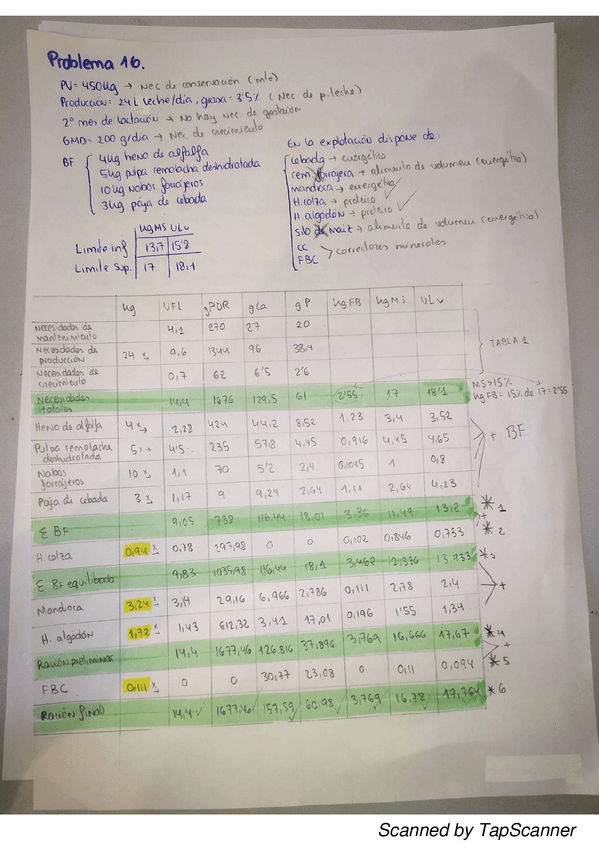 Problema 16.
PV = 450kg → Nec de conservación (m/o)
Producción = 24 L leche/día, grasa = 3'5% (Nec de p. leche)
2º mes de lactación → No hay Nec de gestación
GMD = 200 g/día → Nec de crecimiento
BF { 4kg heno de alfalfa
5kg pulpa remolacha deshidratada
10kg Nabos forrajeros
3kg paja de cebada
En la explotación dispone de:
Cebada → energético
rem. forrajera → alimento de volumen (energético)
mandioca → energético
H. colza → proteico
H. algodón → proteico
silo de maíz → alimento de volumen (energético)
CC
FBC > correctores minerales
kg MS ULv
Límite inf 13,7 15'8
Límite Sup. 17 18,1
kg UFL gPDR gCa gP kgFB kgMs ULv
Necesidades de mantenimiento 4,1 270 27 20
Necesidades de producción 24 x 9,6 1344 96 38,4
Necesidades de crecimiento 0,7 62 6'5 2'6
TABLA 1
Necesidades totales 14,4 1676 129,5 61 2'55 17 18'1
MS > 15%
kg FB = 15% de 17 = 2'55
Heno de alfalfa 4 x 2,28 424 44,2 8,52 1,23 3,4 3,52
Pulpa remolacha deshidratada 5 x 4'5 235 57,8 4,45 0,916 4,45 4,65
Nabos forrajeros 10 x 1,1 70 5'2 2,4 0,1045 1 0,8
Paja de cebada 3 x 1,17 9 9,24 2,64 1,11 2,64 4,23
+ BF
Σ BF 9,05 738 116,44 18,01 3,36 11,49 13,2 *1
H. colza 0,94 x 0,78 297,98 0 0 0,102 0,846 0,733 *2
Σ BF equilibada 9,83 1035,98 116,44 18,1 3,462 12,336 13,933 *3
Mandioca 3,24 x 3,14 29,16 6,966 2,786 0,111 2,78 2,4
H. algodón 1,72 x 1,43 612,32 3,41 17,01 0,196 1'55 1,34
Ración preliminar 14,4 1677,46 126,816 37,896 3,769 16,666 17,67 *4
FBC 0,111 x 0 0 30,77 23,08 0 0,11 0,094 *5
Ración final 14,4 1677,46 157,59 60,98 3,769 16,78 17,764 *6
Scanned by TapScanner